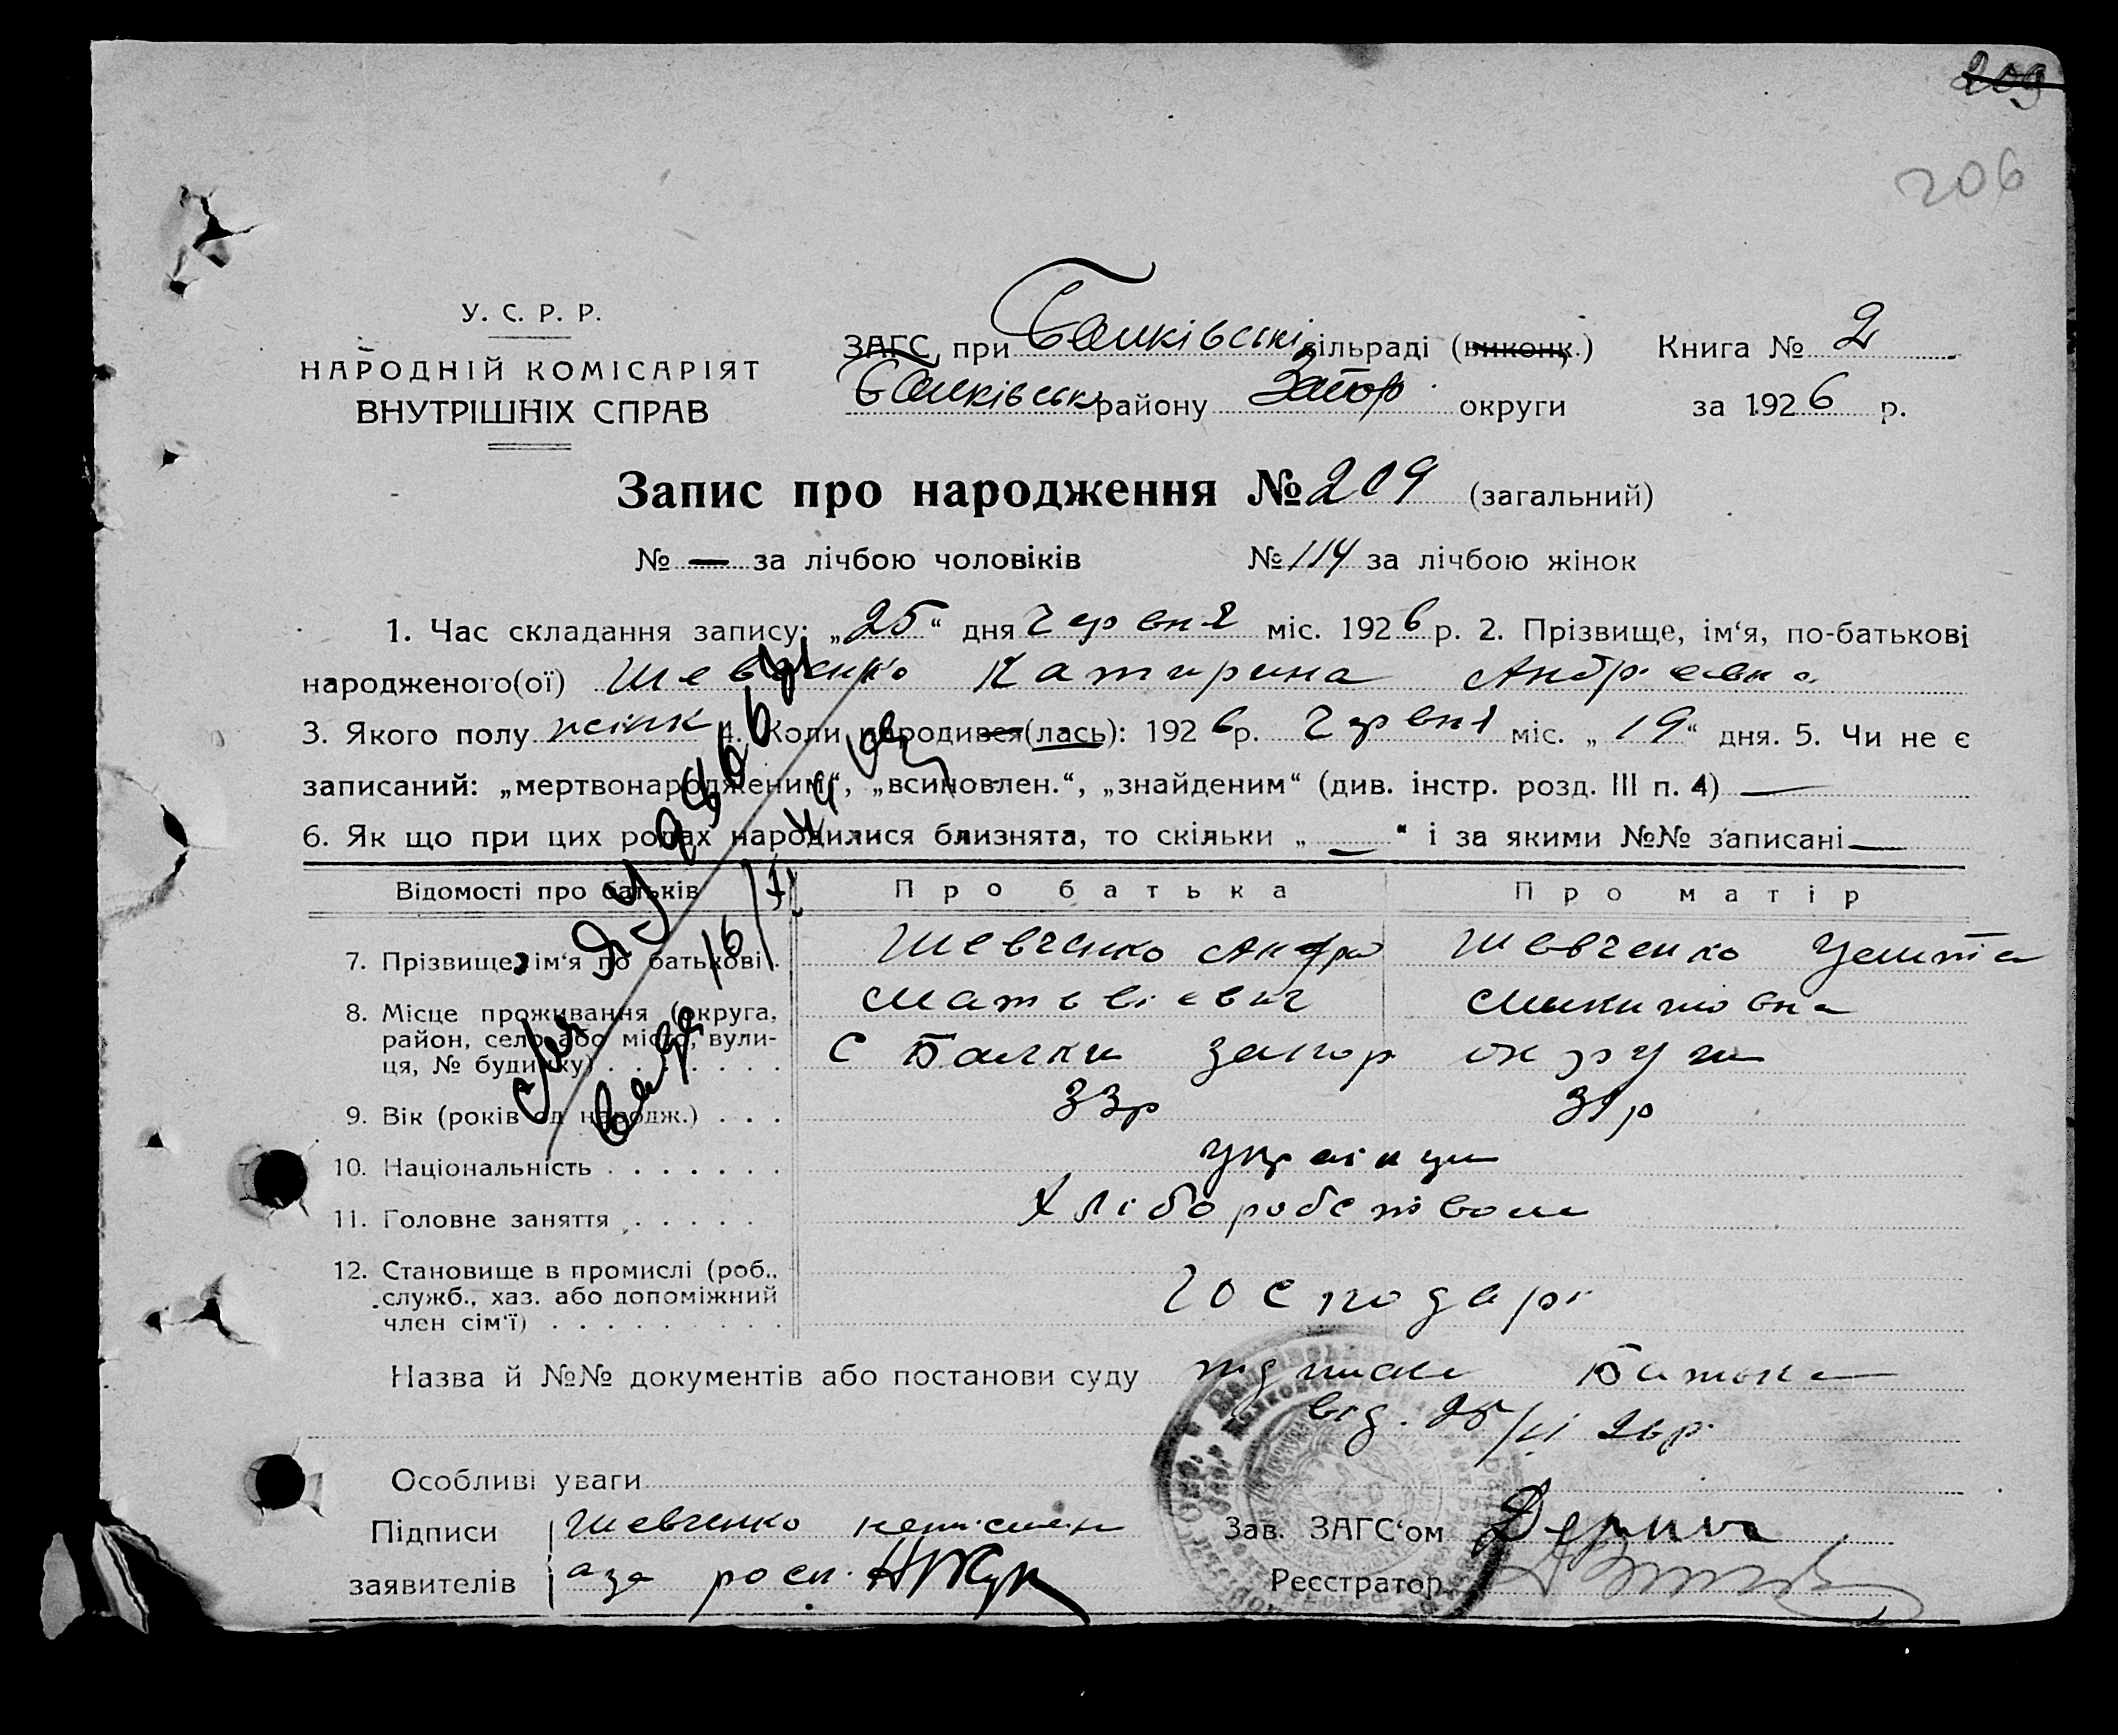 209
206
У. С. Р. Р.
НАРОДНІЙ КОМІСАРІЯТ
ВНУТРІШНІХ СПРАВ
ЗАГС при Балківські сільраді (виконк.) Книга № 2
Балківськ району Запор округи за 1926 р.
Запис про народження № 209 (загальний)
№ — за лічбою чоловіків № 114 за лічбою жінок
1. Час складання запису: „25“ дня Червня міс. 1926 р. 2. Прізвище, ім‘я, по-батькові
народженого(ої) Шевченко Катирина Андреевна
3. Якого полу жінк 4. Коли народився(лась): 1926 р. Червня міс. „19“ дня. 5. Чи не є
записаний: „мертвонародженим“, „всиновлен.“, „знайденим“ (див. інстр. розд. III п. 4) —
6. Як що при цих родах народилися близнята, то скільки „—“ і за якими №№ записані —
Відомості про батьків Про батька Про матір
7. Прізвище, ім‘я по батькові Шевченко Андри Шевченко
Матьвіевич Микитовна
8. Місце проживання (округа,
район, село або місто, вули-
ця, № будинку) с Балки Запор округи
9. Вік (років од народж.) 33р 31р
10. Національність українци
11. Головне заняття Хліборобством
12. Становище в промислі (роб.,
служб., хаз. або допоміжний
член сім‘ї) господарі
Назва й №№ документів або постанови суду Батька
від. 25/VI 26р.
Особливі уваги
Підписи Шевченко неписмен
заявителів а за росп.
Зав. ЗАГС‘ом
Реєстратор